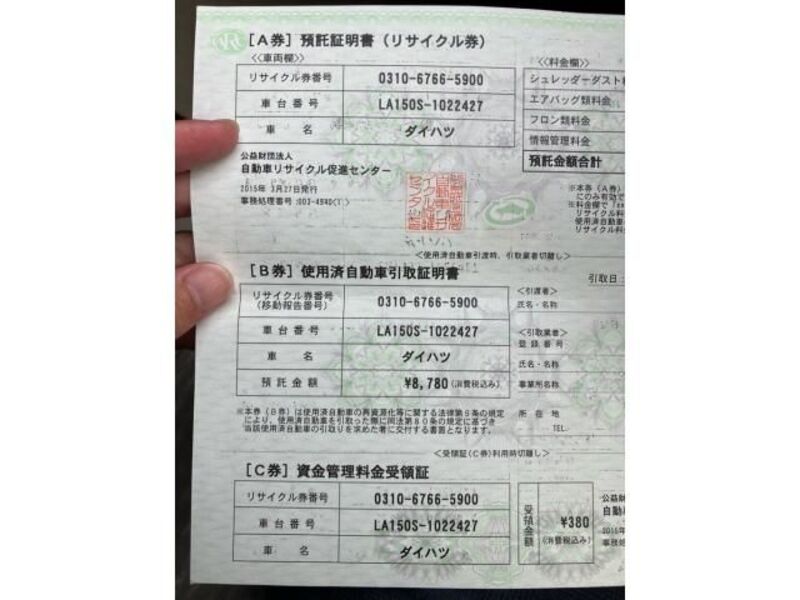 [A券] 預託証明書 (リサイクル券)
≪車両欄≫
リサイクル券番号 0310-6766-5900
車台番号 LA150S-1022427
車名 ダイハツ
≪料金欄≫
シュレッダーダスト料
エアバッグ類料金
フロン類料金
情報管理料金
預託金額合計
公益財団法人
自動車リサイクル促進センター
2015年 3月27日発行
※本券(A券)
にのみ有効で
リサイクル料
使用済自動車
リサイクル料
<使用済自動車引渡時、引取業者切離し>
[B券] 使用済自動車引取証明書
引取日:
リサイクル券番号
(移動報告番号) 0310-6766-5900
車台番号 LA150S-1022427
車名 ダイハツ
預託金額 ¥8,780 (消費税込み)
<引渡者>
氏名・名称
<引取業者>
登録番号
氏名・名称
事業所名称
所在地
TEL.
※本券(B券)は使用済自動車の再資源化等に関する法律第9条の規定
により、使用済自動車を引取った際に同法第80条の規定に基づき
当該使用済自動車の引取りを求めた者に交付する書面となります。
<受領証(C券)利用時切離し>
[C券] 資金管理料金受領証
リサイクル券番号 0310-6766-5900
車台番号 LA150S-1022427
車名 ダイハツ
受領金額 ¥380
(消費税込み)
公益財
自動
2015年
事務処